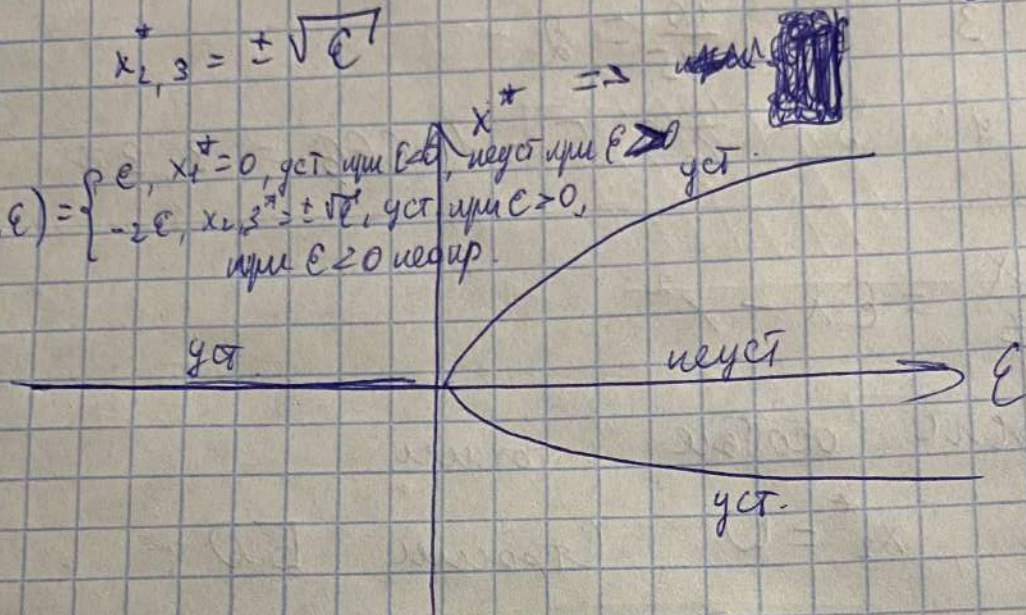 x*₂,₃ = ± √ε
x* =>
ε) = { ε, x₁* = 0, уст. при ε<0, неуст при ε>0
-2ε, x₂,₃* = ±√ε, уст при ε>0,
при ε<0 
уст.
уст
неуст
ε
уст.